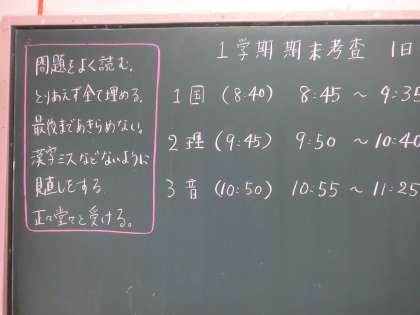 問題をよく読む。
とりあえず全て埋める。
最後まであきらめない。
漢字ミスなどないように
見直しをする
正々堂々と受ける。
1学期期末考査 1日
1 国 (8:40) 8:45 ~ 9:35
2 理 (9:45) 9:50 ~ 10:40
3 音 (10:50) 10:55 ~ 11:25